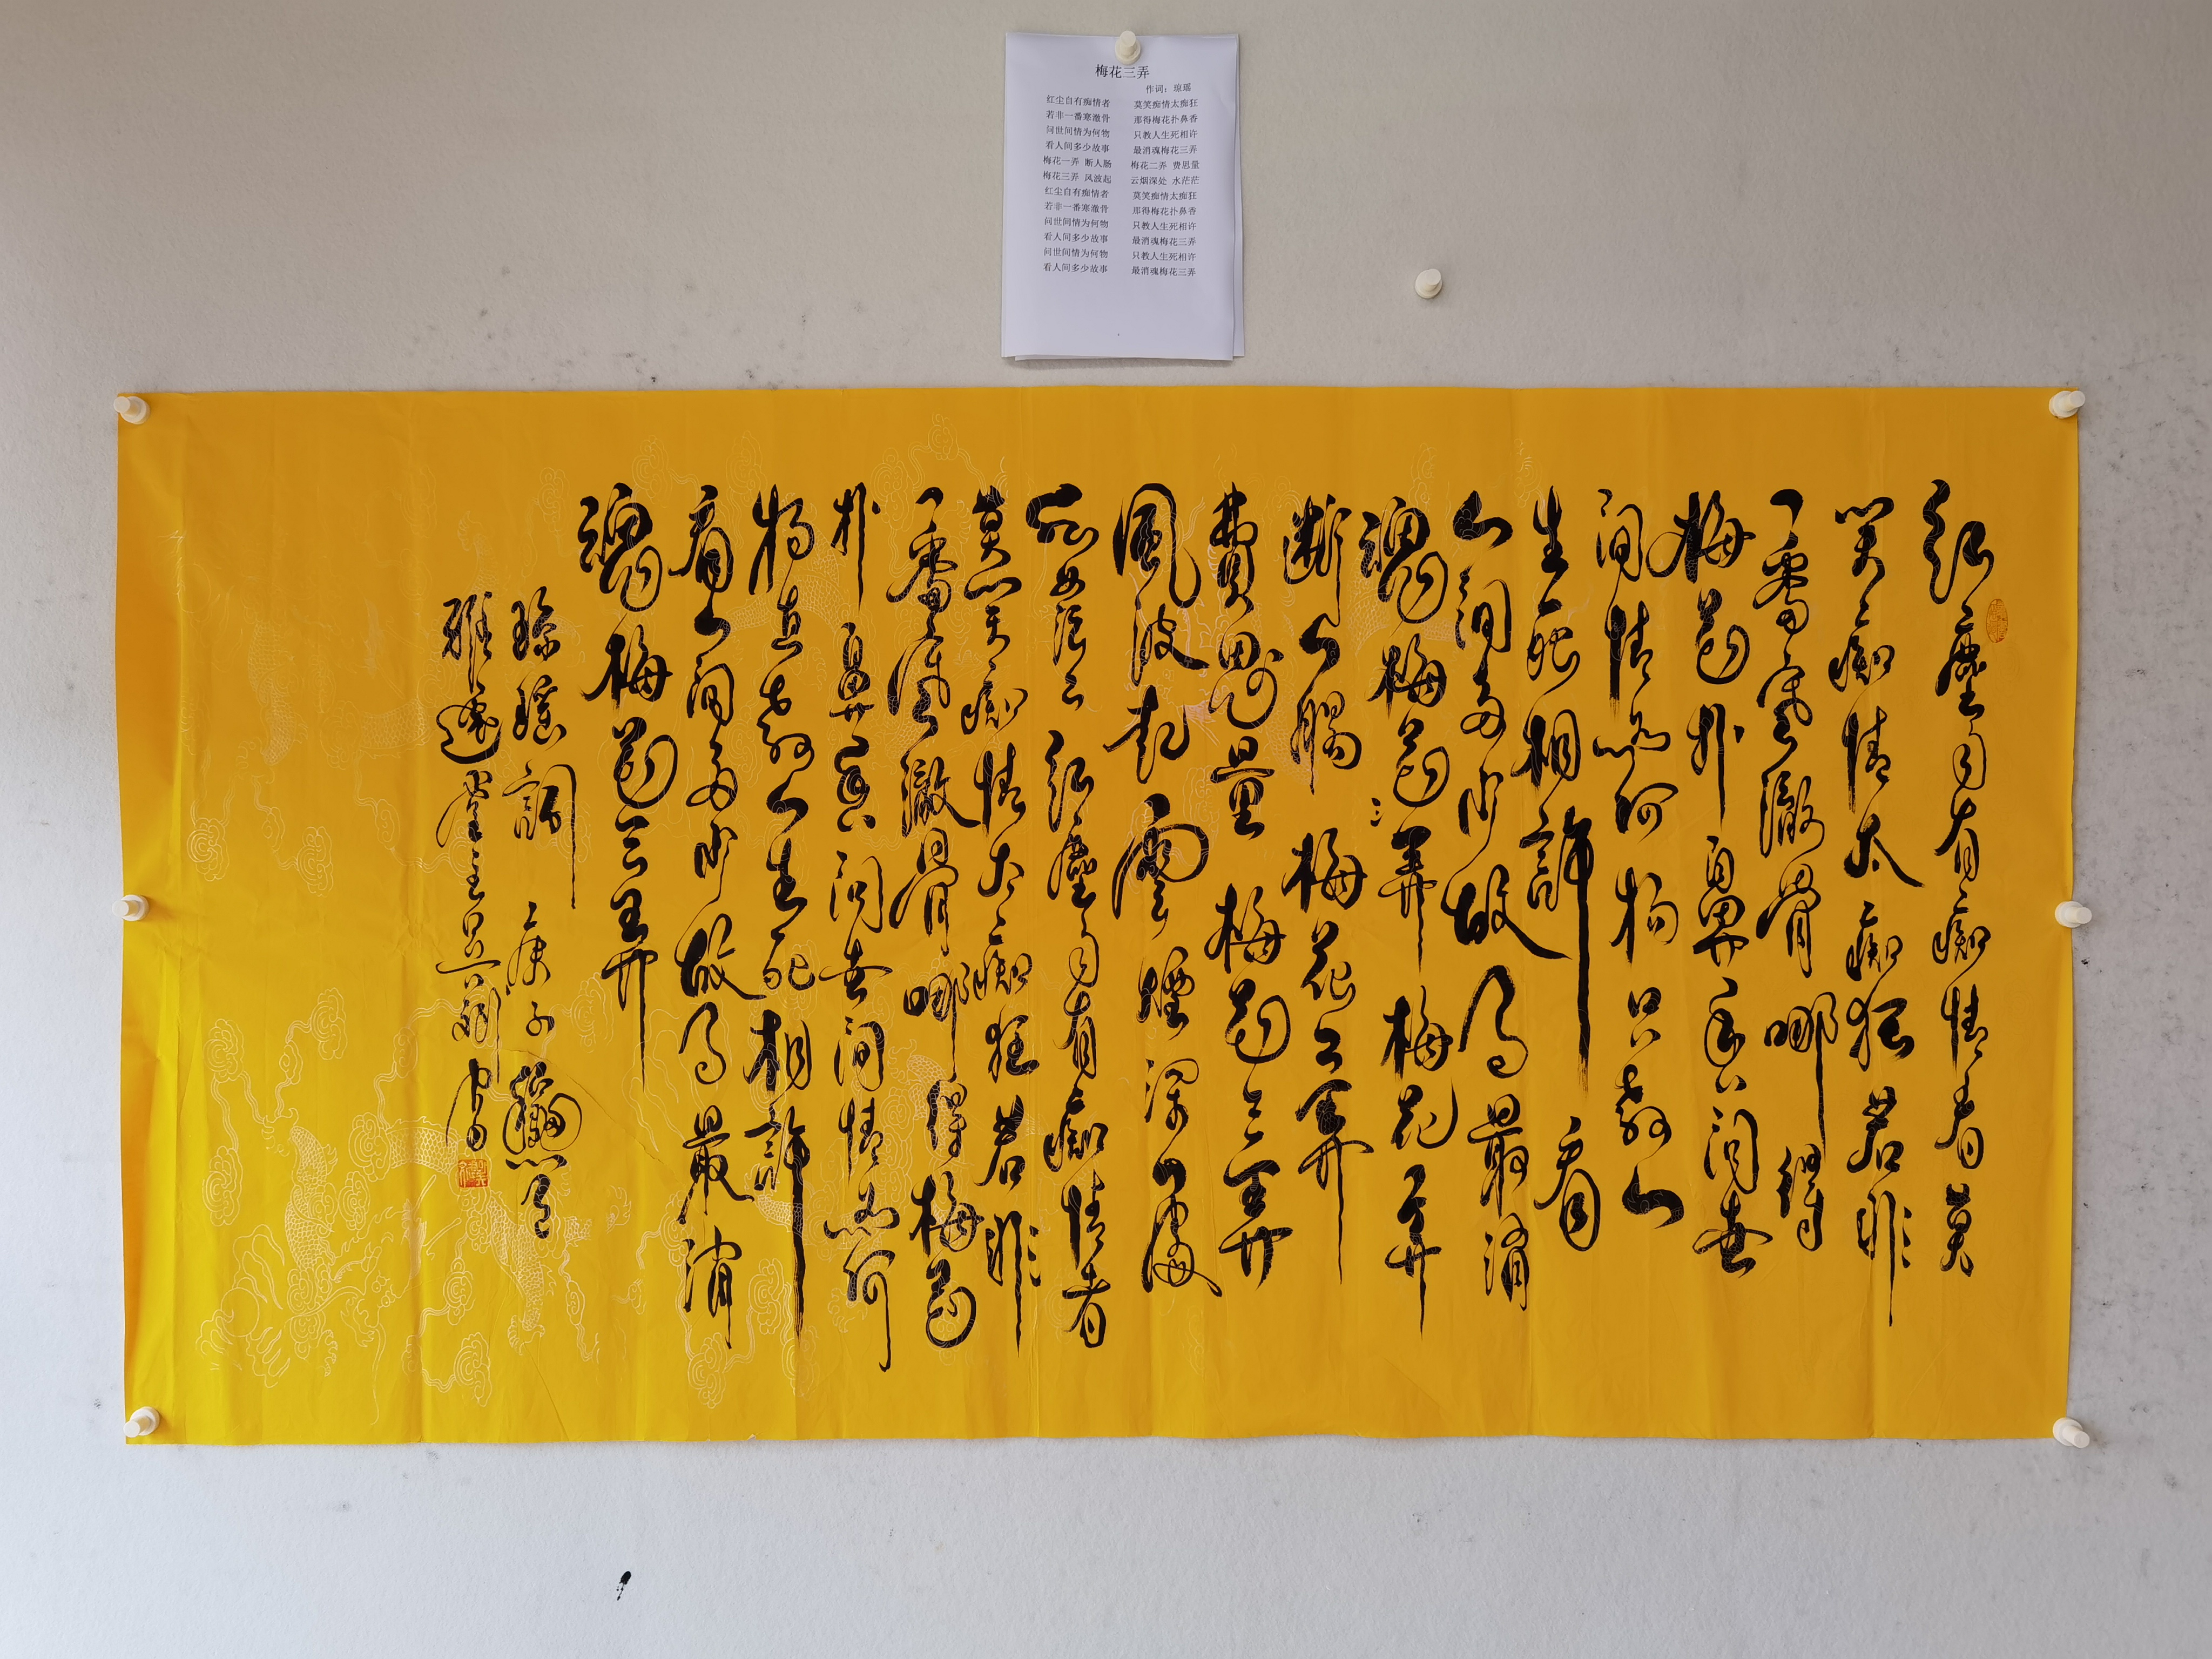 梅花三弄
作词：琼瑶
红尘自有痴情者 莫笑痴情太痴狂
若非一番寒澈骨 那得梅花扑鼻香
问世间情为何物 只教人生死相许
看人间多少故事 最消魂梅花三弄
梅花一弄 断人肠 梅花二弄 费思量
梅花三弄 风波起 云烟深处 水茫茫
红尘自有痴情者 莫笑痴情太痴狂
若非一番寒澈骨 那得梅花扑鼻香
问世间情为何物 只教人生死相许
看人间多少故事 最消魂梅花三弄
问世间情为何物 只教人生死相许
看人间多少故事 最消魂梅花三弄
紅塵自有痴情者莫
笑痴情太痴狂若非
一番寒澈骨哪得
梅花扑鼻香問世
間情為何物只教人
生死相許看
人間多少故事最消
魂梅花三弄梅花一弄
斷人腸梅花二弄
費思量梅花三弄
風波起雲煙深處
水茫茫紅塵自有痴情者
莫笑痴情太痴狂若非
一番寒澈骨哪得梅花
扑鼻香問世間情為何
物直教人生死相許
看人間多少故事最消
魂梅花三弄
琼瑤詞庚子
雅逸堂主書